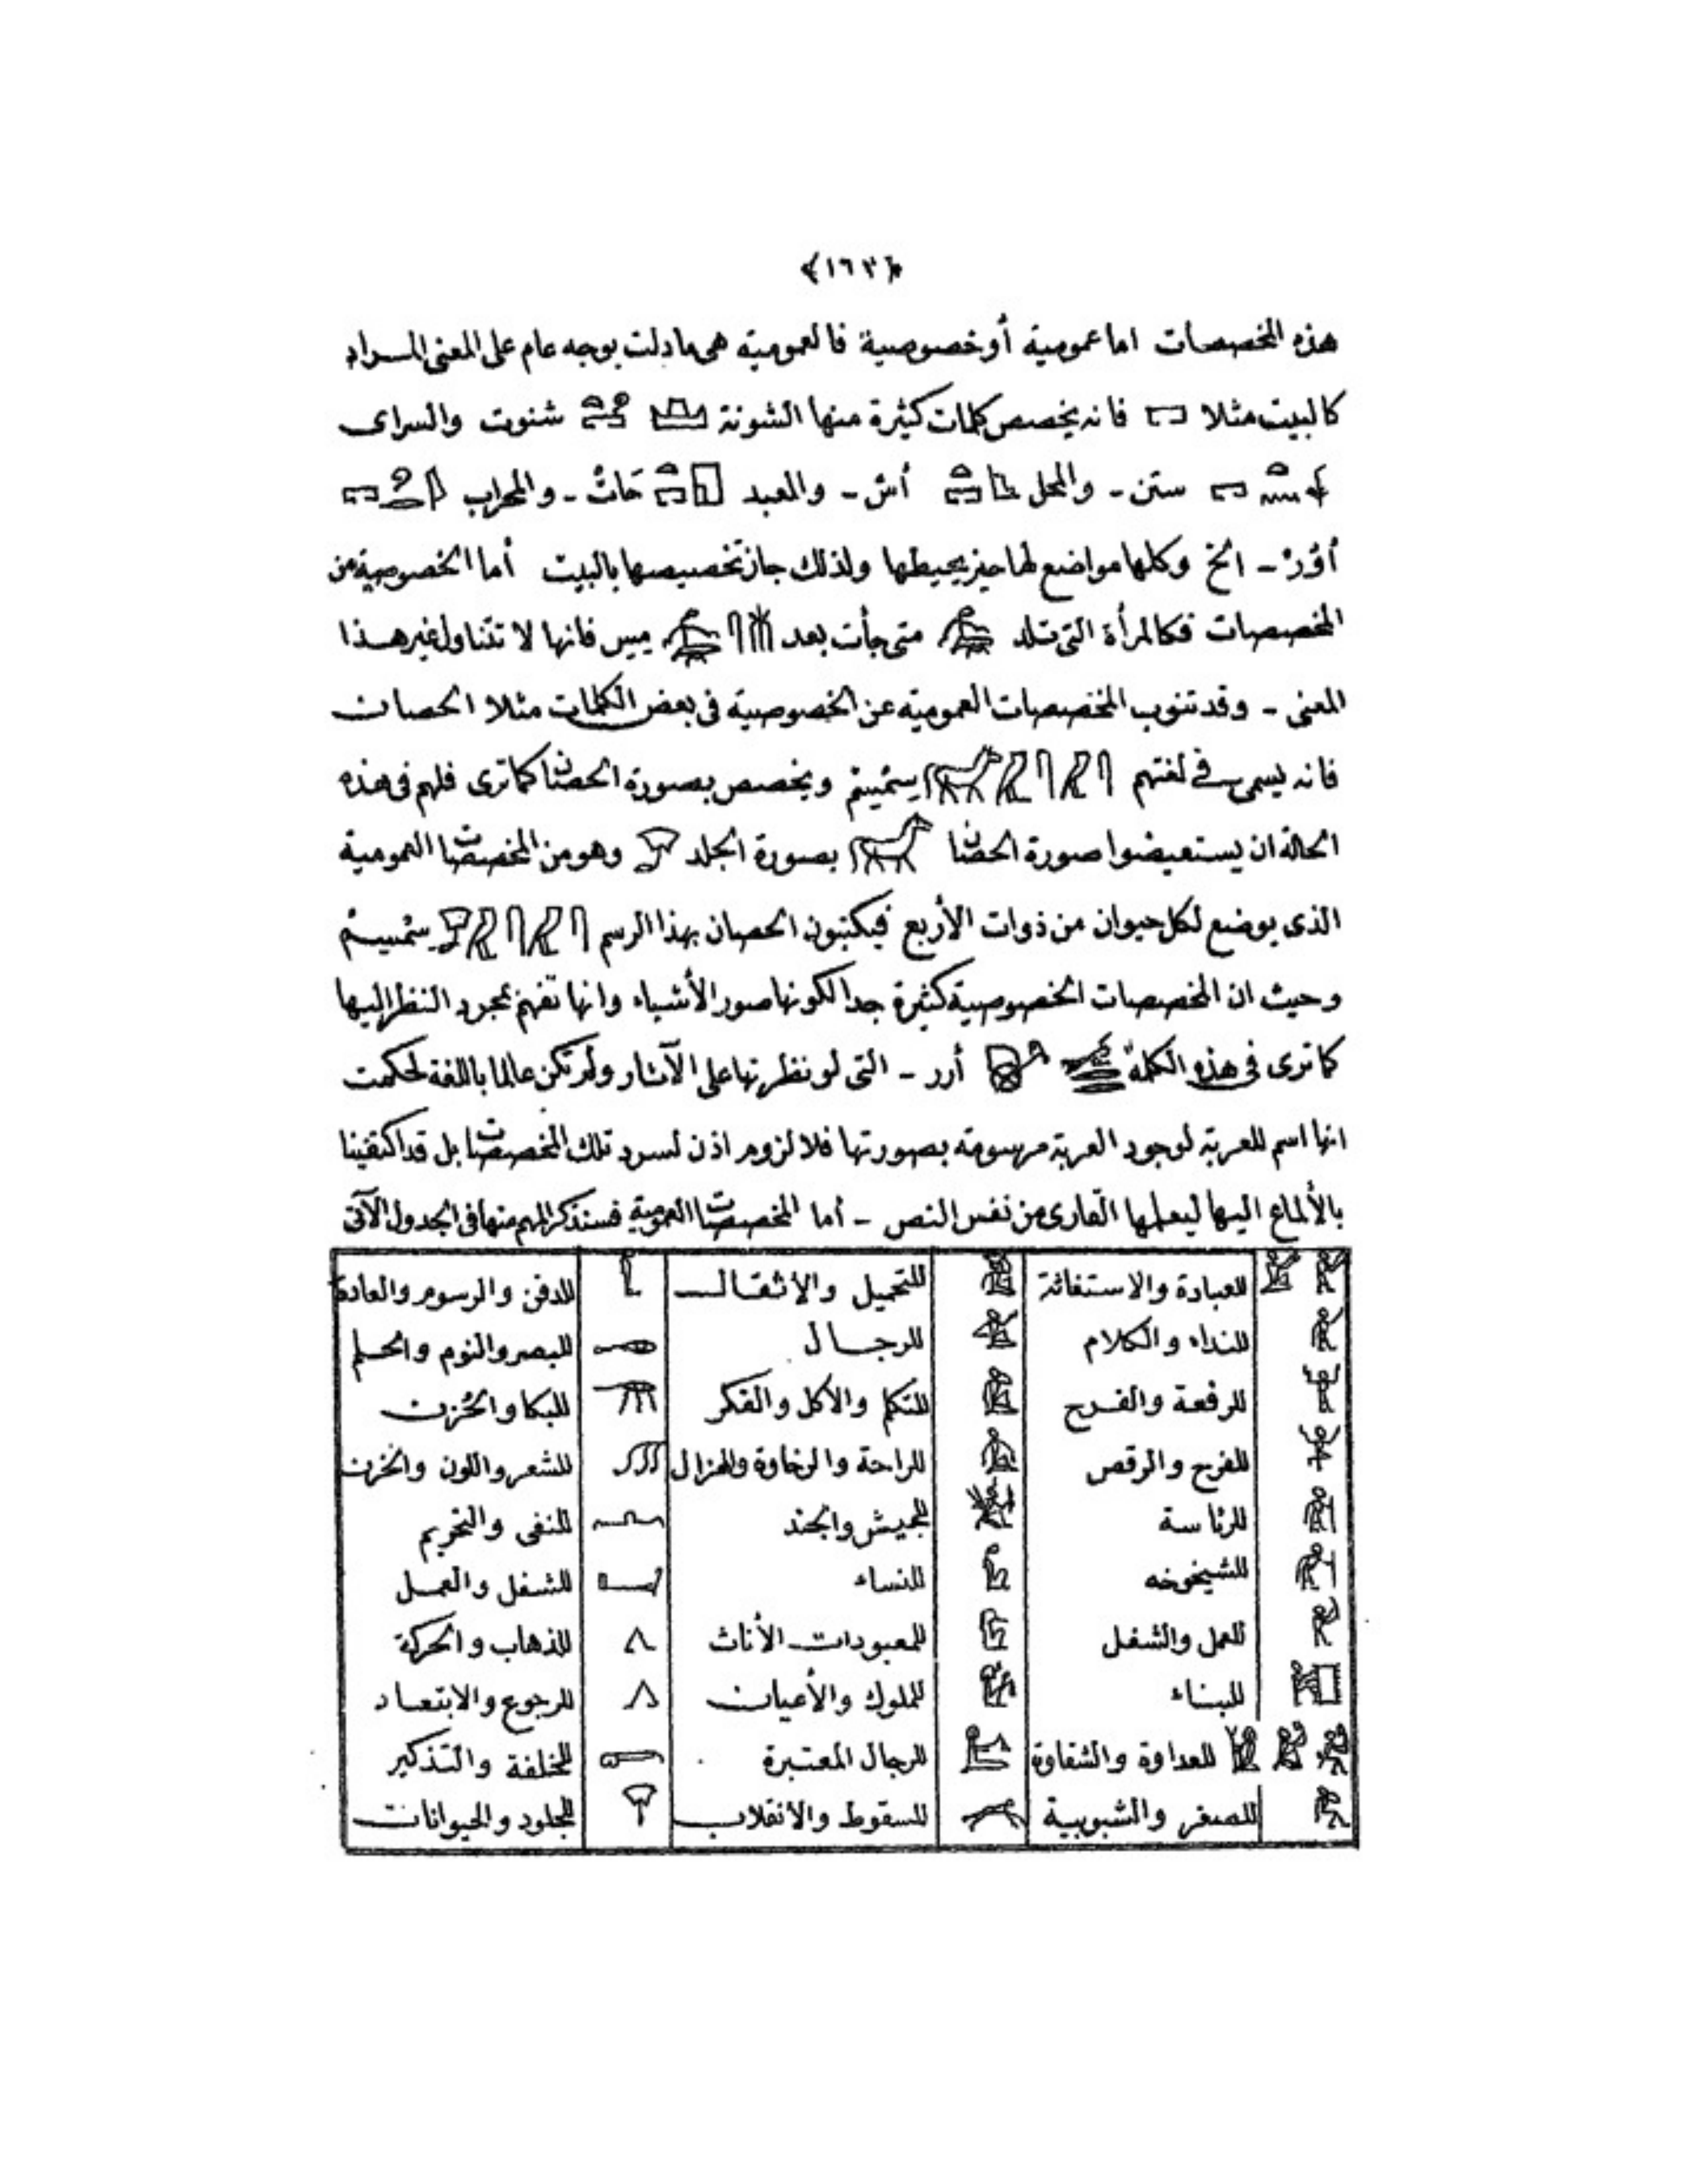 ﴿١٦٣﴾
هذه المخصصات اما عمومية أو خصوصية فالعمومية هى مادلت بوجه عام على المعنى المراد
كالبيت مثلا فانه يخصص كلمات كثيرة منها الشونة شنوت والسراى
ستن - والمحل أس - والمعبد حَاتْ - والمحراب
أؤرْ - الخ وكلها مواضع لها حيز يحيطها ولذلك جاز تخصيصها بالبيت أما الخصوصية من
المخصصات فكالمرأة التى تلد متى جأت بعد ميس فانها لا تتناول غير هذا
المعنى - وقد تنوب المخصصات العمومية عن الخصوصية فى بعض الكلمات مثلا الحصان
فانه يسمى فى لغتهم سِمْسِمْ ويخصص بصورة الحصان كما ترى فلهم فى هذه
الحالة ان يستعيضوا صورة الحصان بصورة الجلد وهو من المخصصات العمومية
الذى يوضع لكل حيوان من ذوات الأربع فيكتبون الحصان بهذا الرسم سمسم
وحيث ان المخصصات الخصوصية كثيرة جدا لكونها صور الأشياء وانها تفهم بمجرد النظر اليها
كما ترى فى هذه الكلمة أرر - التى لو نظرتها على الآثار ولم تكن عالما باللغة لحكمت
انها اسم للعربة لوجود العربة مرسومة بصورتها فلا لزوم اذن لسرد تلك المخصصات بل قد اكتفينا
بالألماع اليها ليعلمها القارى من نفس النص - أما المخصصات العمومية فسنذكر المهم منها فى الجدول الآتى
للعبادة والاستغاثة للتحميل والاثقال للدفن والرسوم والعادة
للنداء والكلام للرجال للبصر والنوم والحلم
للرفعة والفرح للتكلم والاكل والفكر للبكا والحُزن
للفرح والرقص للراحة والرخاوة والهزال للشعر واللون والحزن
للرئاسة للجيش والجند للنفى والتحريم
للشيخوخه للنساء للشغل والعمل
للعمل والشغل للمعبودات الأناث للذهاب والحركة
للبناء للملوك والأعيان للرجوع والابتعاد
للعداوة والشقاوة للرجال المعتبرة للخلفة والتذكير
للصغر والشبوبية للسقوط والانقلاب للجلود والحيوانات